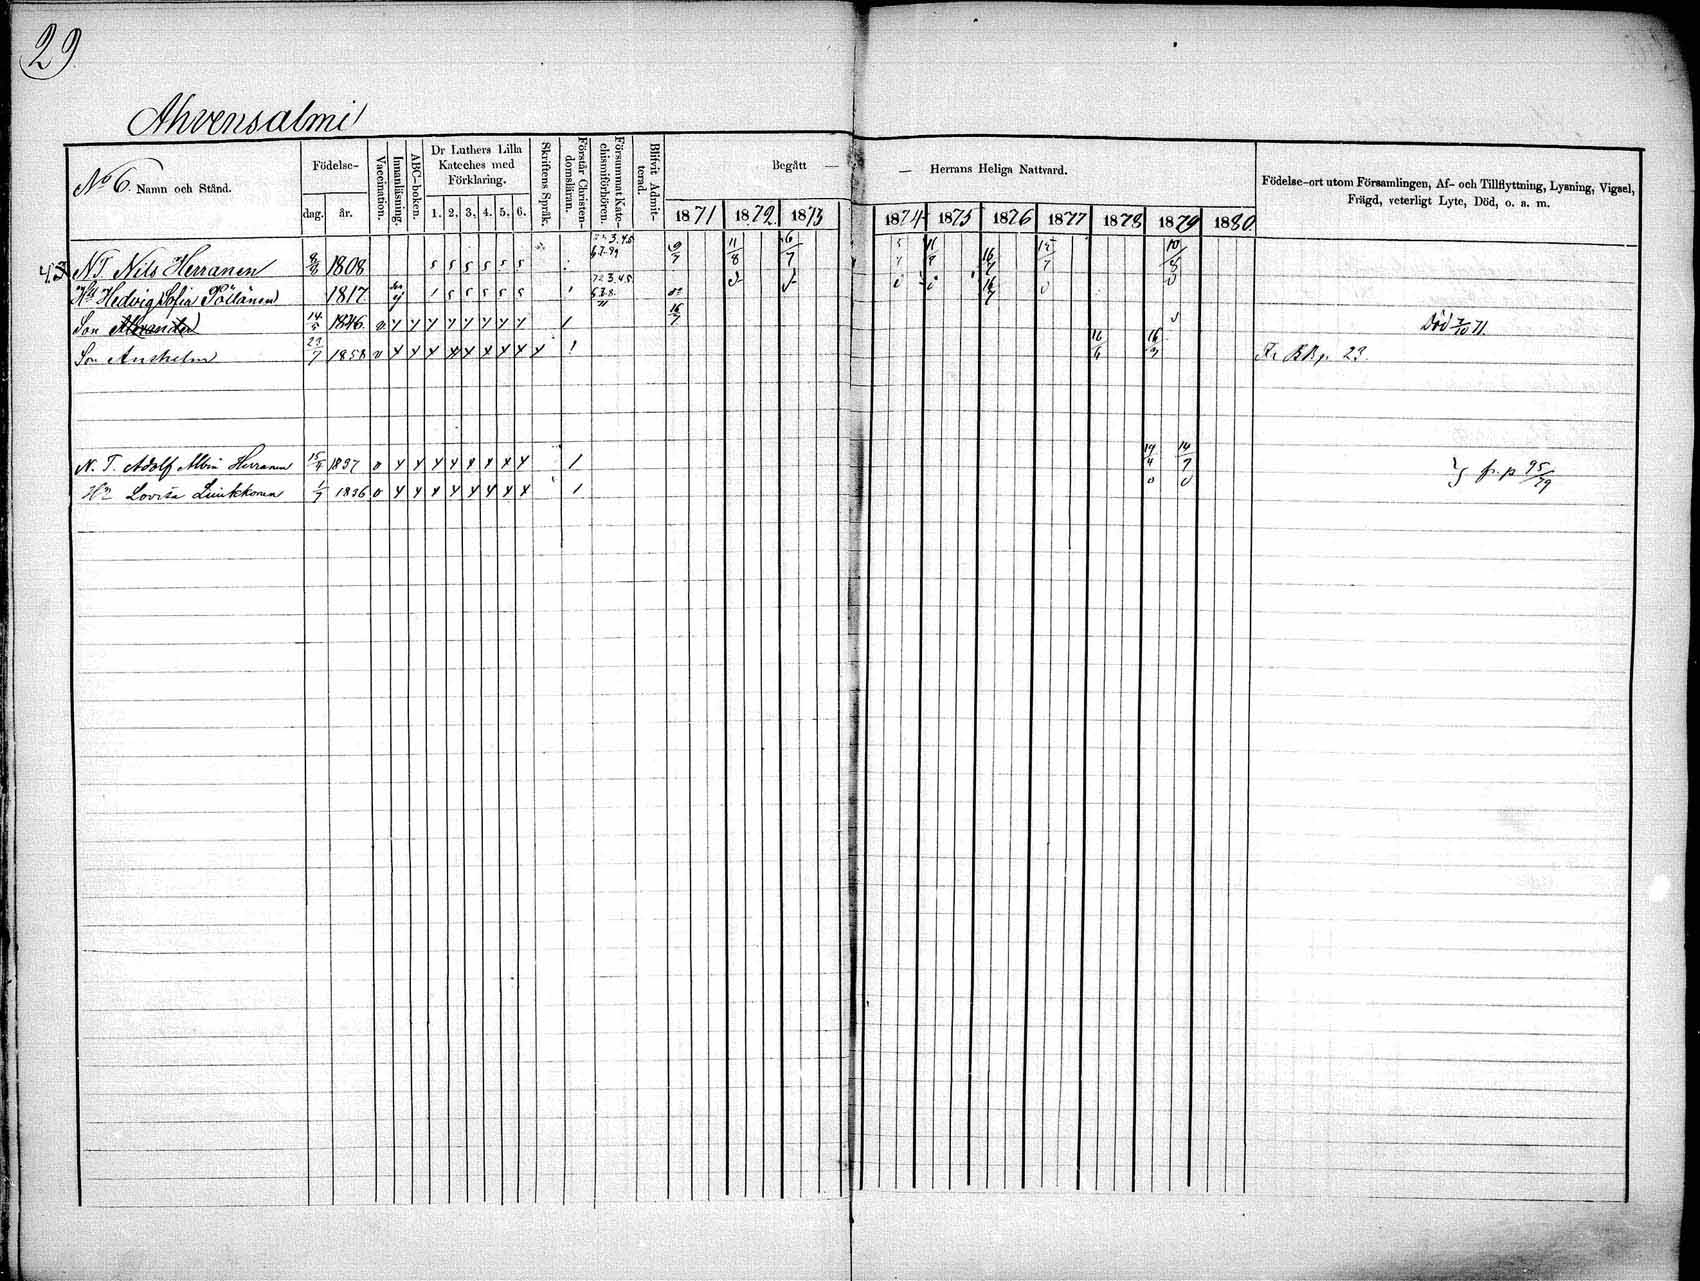 29
Ahvensalmi
No 6. Namn och Stånd.
Födelse-
dag.
år.
Vaccination.
Innanläsning.
ABC-boken.
Dr Luthers Lilla
Kateches med
Förklaring.
1. 2. 3. 4. 5. 6.
Skriftens Språk.
Förstår Christen-
domsläran.
Försummat Kate-
chismiförhören.
Blifvit Admit-
terad.
Begått —
— Herrans Heliga Nattvard.
1871 1872. 1873 1874 1875 1876 1877 1878 1879 1880
Födelse-ort utom Församlingen, Af- och Tillflyttning, Lysning, Vigsel,
Frägd, veterligt Lyte, Död, o. a. m.
43 NT Nils Herranen 1808 5 5 5 5 5 5 9/7 11/8 6/7 16/7 12/7 10/8
Hu Hedvig Sofia Pöllänen 1817 1 5 5 5 5 5 16/7
Son Alexander 14/5 1846 v x x x x x x x x 1 16/7 Död 2/10 71.
Son Anshelm 23/7 1858 v x x x x x x x x x 1 16/6 16/7 Fr. BB p. 23.
N. T. Adolf Albin Herranen 15/5 1837 v x x x x x x x x 1 14/4 14/7 fr. p 95/79
Hu Lovisa Luukkonen 1/7 1836 v x x x x x x x x 1